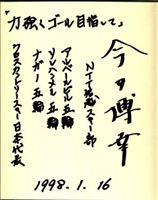 「力強くゴール目指して」
今井博幸
NTT信越スキー部
アルベールビル五輪
リレハンメル五輪
ナガノ五輪
クロスカントリースキー日本代表
1998.1.16